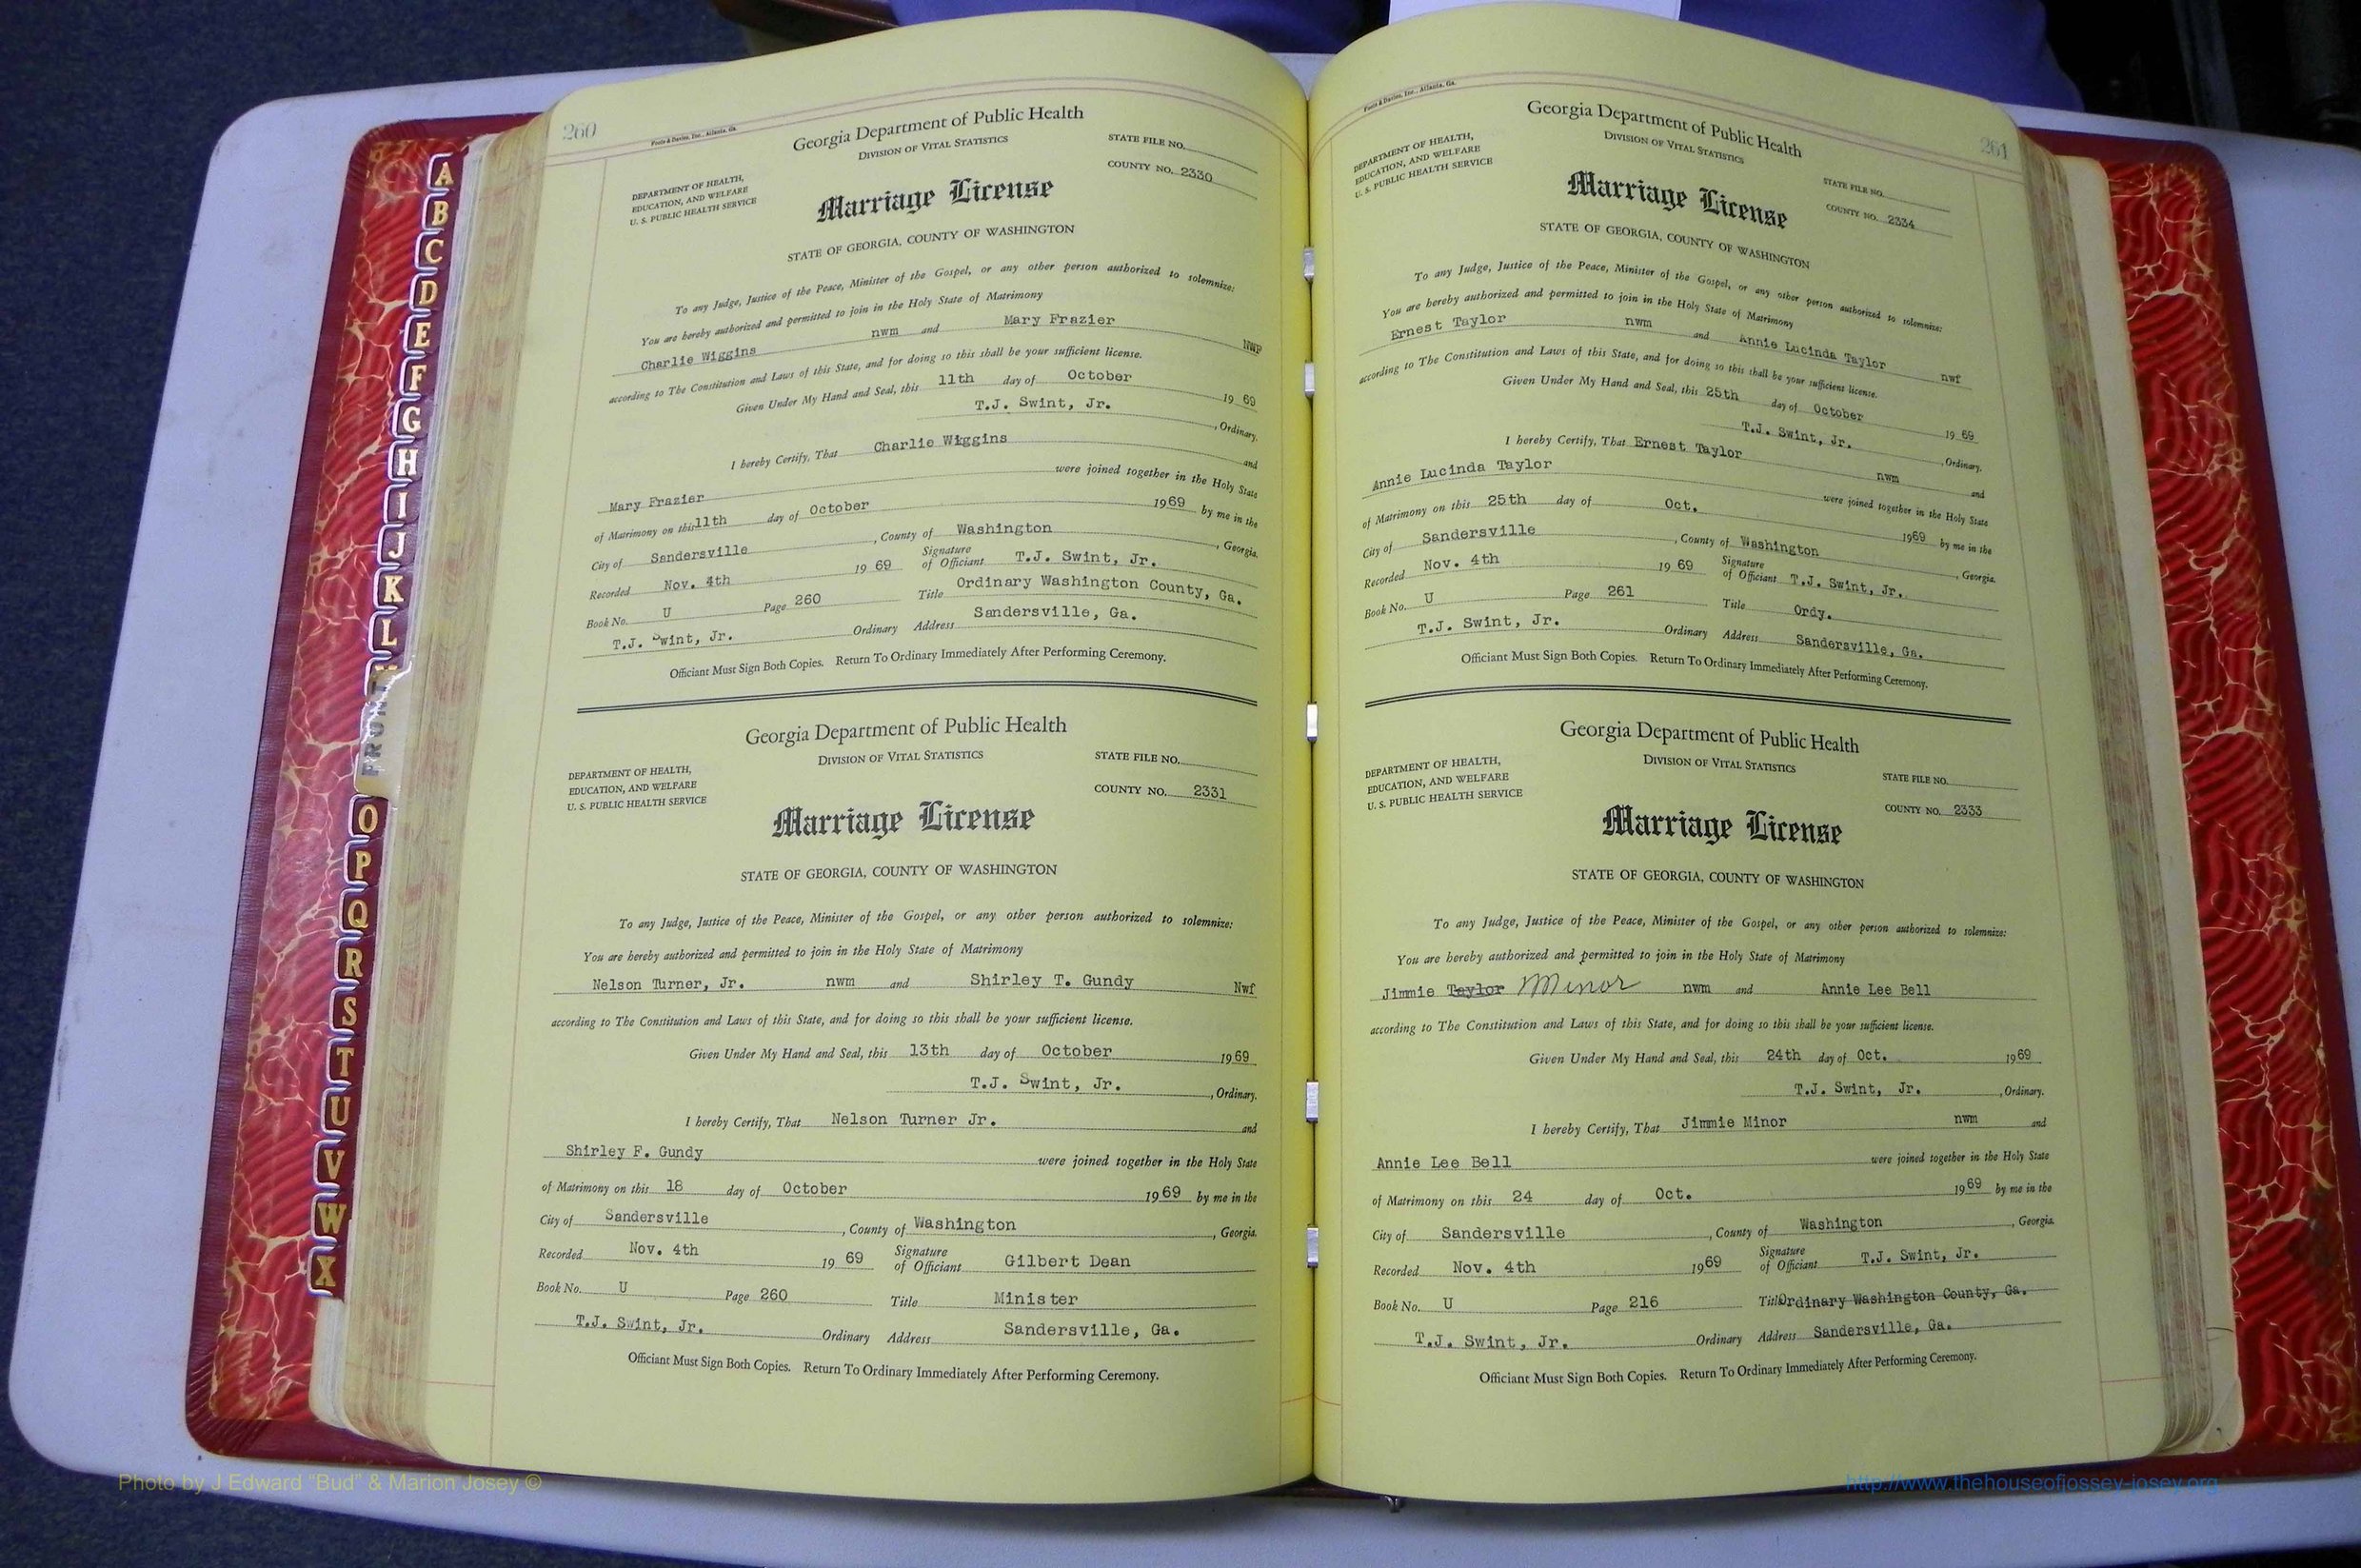 A
B
C
D
E
F
G
H
I
J
K
L
FRONT
O
P
Q
R
S
T
U
V
W
X
260
Foote & Davies, Inc., Atlanta, Ga.
Georgia Department of Public Health
DIVISION OF VITAL STATISTICS
STATE FILE NO.
COUNTY NO. 2330
DEPARTMENT OF HEALTH,
EDUCATION, AND WELFARE
U. S. PUBLIC HEALTH SERVICE
Marriage License
STATE OF GEORGIA, COUNTY OF WASHINGTON
To any Judge, Justice of the Peace, Minister of the Gospel, or any other person authorized to solemnize:
You are hereby authorized and permitted to join in the Holy State of Matrimony
Charlie Wiggins nwm and Mary Frazier NWF
according to The Constitution and Laws of this State, and for doing so this shall be your sufficient license.
Given Under My Hand and Seal, this 11th day of October 19 69
T.J. Swint, Jr. , Ordinary.
I hereby Certify, That Charlie Wiggins and
Mary Frazier were joined together in the Holy State
of Matrimony on this 11th day of October 1969 by me in the
City of Sandersville , County of Washington , Georgia.
Recorded Nov. 4th 19 69 Signature of Officiant T.J. Swint, Jr.
Book No. U Page 260 Title Ordinary Washington County, Ga.
T.J. Swint, Jr. Ordinary Address Sandersville, Ga.
Officiant Must Sign Both Copies. Return To Ordinary Immediately After Performing Ceremony.
Georgia Department of Public Health
DIVISION OF VITAL STATISTICS
STATE FILE NO.
COUNTY NO. 2331
DEPARTMENT OF HEALTH,
EDUCATION, AND WELFARE
U. S. PUBLIC HEALTH SERVICE
Marriage License
STATE OF GEORGIA, COUNTY OF WASHINGTON
To any Judge, Justice of the Peace, Minister of the Gospel, or any other person authorized to solemnize:
You are hereby authorized and permitted to join in the Holy State of Matrimony
Nelson Turner, Jr. nwm and Shirley T. Gundy Nwf
according to The Constitution and Laws of this State, and for doing so this shall be your sufficient license.
Given Under My Hand and Seal, this 13th day of October 1969
T.J. Swint, Jr. , Ordinary.
I hereby Certify, That Nelson Turner Jr. and
Shirley F. Gundy were joined together in the Holy State
of Matrimony on this 18 day of October 1969 by me in the
City of Sandersville , County of Washington , Georgia.
Recorded Nov. 4th 19 69 Signature of Officiant Gilbert Dean
Book No. U Page 260 Title Minister
T.J. Swint, Jr. Ordinary Address Sandersville, Ga.
Officiant Must Sign Both Copies. Return To Ordinary Immediately After Performing Ceremony.
261
Foote & Davies, Inc., Atlanta, Ga.
Georgia Department of Public Health
DIVISION OF VITAL STATISTICS
DEPARTMENT OF HEALTH,
EDUCATION, AND WELFARE
U. S. PUBLIC HEALTH SERVICE
STATE FILE NO.
COUNTY NO. 2334
Marriage License
STATE OF GEORGIA, COUNTY OF WASHINGTON
To any Judge, Justice of the Peace, Minister of the Gospel, or any other person authorized to solemnize:
You are hereby authorized and permitted to join in the Holy State of Matrimony
Ernest Taylor nwm and Annie Lucinda Taylor nwf
according to The Constitution and Laws of this State, and for doing so this shall be your sufficient license.
Given Under My Hand and Seal, this 25th day of October 19 69
T.J. Swint, Jr. , Ordinary.
I hereby Certify, That Ernest Taylor nwm and
Annie Lucinda Taylor were joined together in the Holy State
of Matrimony on this 25th day of Oct. 1969 by me in the
City of Sandersville , County of Washington , Georgia.
Recorded Nov. 4th 19 69 Signature of Officiant T.J. Swint, Jr.
Book No. U Page 261 Title Ordy.
T.J. Swint, Jr. Ordinary Address Sandersville, Ga.
Officiant Must Sign Both Copies. Return To Ordinary Immediately After Performing Ceremony.
Georgia Department of Public Health
DIVISION OF VITAL STATISTICS
DEPARTMENT OF HEALTH,
EDUCATION, AND WELFARE
U. S. PUBLIC HEALTH SERVICE
STATE FILE NO.
COUNTY NO. 2333
Marriage License
STATE OF GEORGIA, COUNTY OF WASHINGTON
To any Judge, Justice of the Peace, Minister of the Gospel, or any other person authorized to solemnize:
You are hereby authorized and permitted to join in the Holy State of Matrimony
Jimmie Taylor Minor nwm and Annie Lee Bell
according to The Constitution and Laws of this State, and for doing so this shall be your sufficient license.
Given Under My Hand and Seal, this 24th day of Oct. 1969
T.J. Swint, Jr. , Ordinary.
I hereby Certify, That Jimmie Minor nwm and
Annie Lee Bell were joined together in the Holy State
of Matrimony on this 24 day of Oct. 1969 by me in the
City of Sandersville , County of Washington , Georgia.
Recorded Nov. 4th 1969 Signature of Officiant T.J. Swint, Jr.
Book No. U Page 216 Title Ordinary Washington County, Ga.
T.J. Swint, Jr. Ordinary Address Sandersville, Ga.
Officiant Must Sign Both Copies. Return To Ordinary Immediately After Performing Ceremony.
Photo by J Edward "Bud" & Marion Josey ©
http://www.thehouseofjossey-josey.org